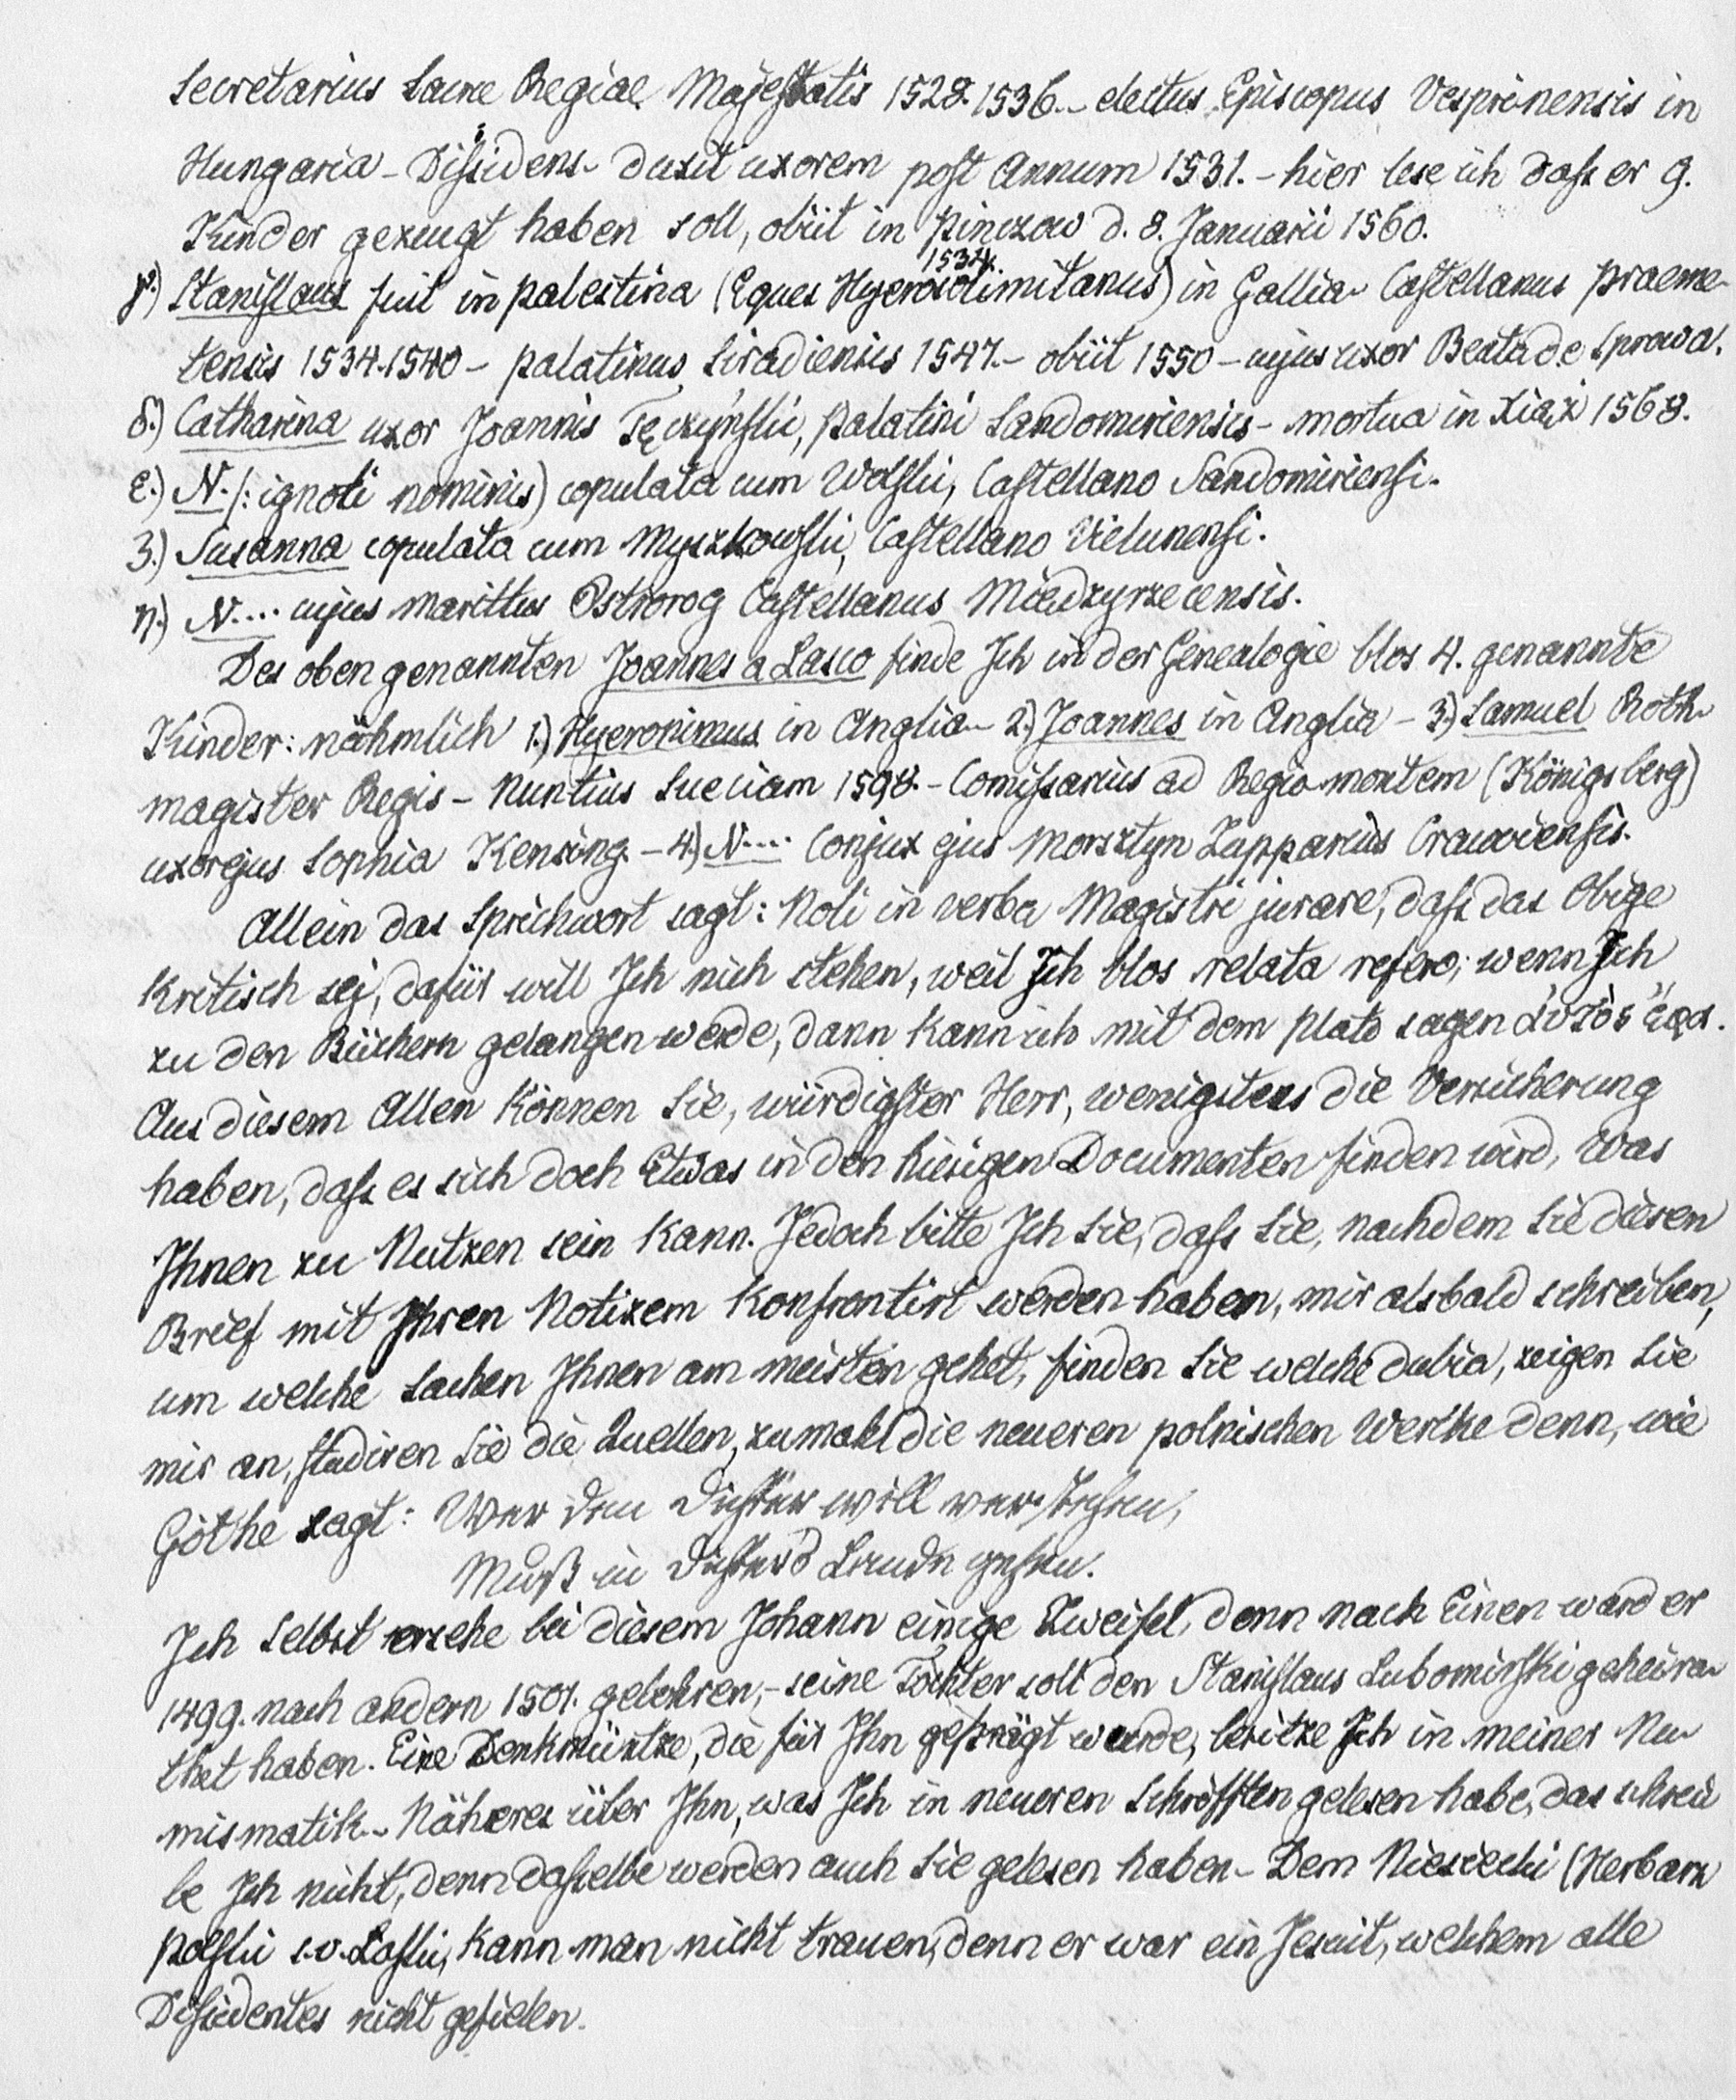 Secretarius Sacrae Regiae Majestatis 1528. 1536. - electus Episcopus Vesprinensis in
Hungaria - Dissidens - duxit uxorem post Annum 1531. - hier lese ich dass er 9.
Kinder gezeugt haben soll, obiit in Pinczow d. 8. Januarii 1560.
1534.
γ.) Stanislaus fuit in Palestina (Eques Hyerosolimitanus) in Gallia - Castellanus Praeme-
tensis 1534. 1540 - Palatinus Siradiensis 1547. - obiit 1550 - cujus uxor Beata de Sprowa.
δ.) Catharina uxor Joannis Tęczyński, Palatini Sandomiriensis - mortua in Xiąż 1568.
ε.) N. (: ignoti nominis) copulata cum Wolski, Castellano Sandomiriensi.
3.) Susanna copulata cum Myszkowski, Castellano Vielunensi.
η.) N.... cujus marittus Ostrorog Castellanus Miedzyrzecensis.
Des oben genannten Joannes a Lasco finde Ich in der Genealogie blos 4. genannte
Kinder: nähmlich 1.) Hyeronimus in Anglia - 2.) Joannes in Anglia - 3.) Samuel Roth-
magister Regis - Nuntius Sueciam 1598. - Comissarius ad Regiomontem (Königsberg)
uxor ejus Sophia Kensing. - 4.) N.... Conjux ejus Morsztyn Zupparius Cracoviensis.
Allein das Sprichwort sagt: Noli in verba Magistri jurare, dass das Obige
kritisch sej, dafür will Ich nich stehen, weil Ich blos relata refero; wenn Ich
zu den Büchern gelangen werde, dann kann ich mit dem Plato sagen
Aus diesem Allen können Sie, würdigster Herr, wenigstens die Versicherung
haben, dass es sich doch Etwas in den hiesigen Documenten finden wird, was
Ihnen zu Nutzen sein kann. Jedoch bitte Ich Sie, dass Sie, nachdem Sie diesen
Brief mit Ihren Notizem konfrontirt werden haben, mir alsbald schreiben,
um welche Sachen Ihnen am meisten gehet, finden Sie welche dubia, zeigen Sie
mir an, studiren Sie die Quellen, zumahl die neueren polnischen Werke denn, wie
Göthe sagt: Wer den Dichter will verstehen,
Muß in Dichters Lande gehen.
Ich selbst ersehe bei diesem Johann einige Zweifel, denn nach Einen ward er
1499. nach andern 1501. gebohren, - seine Tochter soll den Stanislaus Lubomirski geheira-
thet haben. Eine Denkmüntze, die für Ihn geprägt wurde, besitze Ich in meiner Nu-
mismatik. - Näheres über Ihn, was Ich in neueren Schrifften gelesen habe, das schrei-
be Ich nicht, denn dasselbe werden auch Sie gelesen haben - Dem Niesiecki (Herbarz
Polski s. v. Laski, kann man nicht trauen, denn er war ein Jesuit, welchem alle
Dissidentes nicht gefielen.